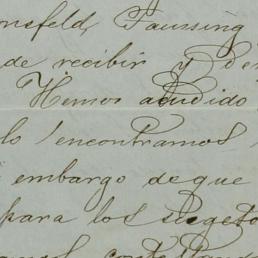 nsfeld, Paussing
de recibir y de
Hemos acudido
lo encontramos
embargo de que
para los sugeto